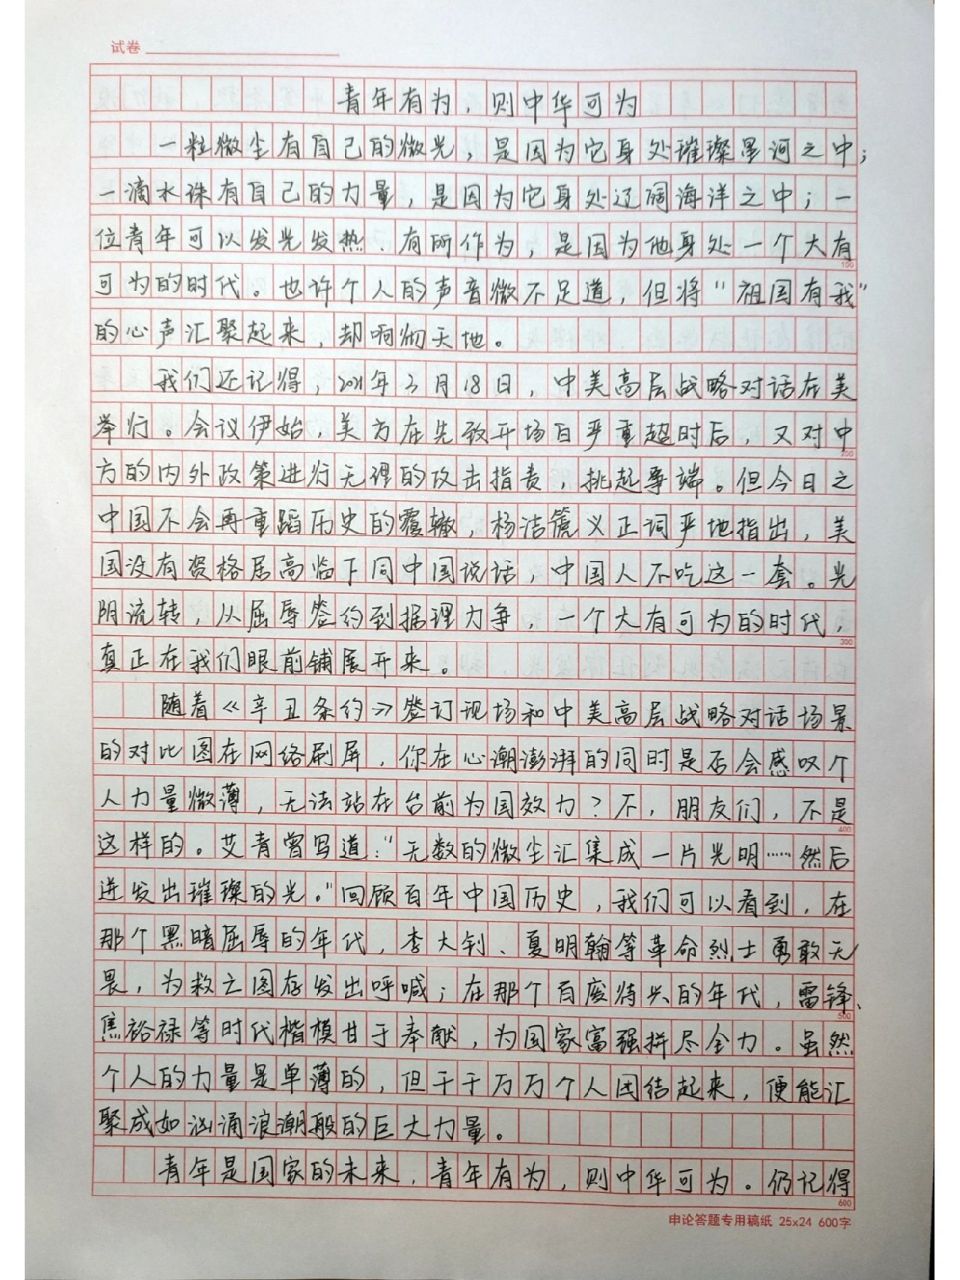 试卷
青年有为，则中华可为
一粒微尘有自己的微光，是因为它身处璀璨星河之中；
一滴水珠有自己的力量，是因为它身处辽阔海洋之中；一
位青年可以发光发热、有所作为，是因为他身处一个大有
可为的时代。也许个人的声音微不足道，但将“祖国有我”
的心声汇聚起来，却响彻天地。
我们还记得，2021年3月18日，中美高层战略对话在美
举行。会议伊始，美方在先致开场白严重超时后，又对中
方的内外政策进行无理的攻击指责，挑起争端。但今日之
中国不会再重蹈历史的覆辙，杨洁篪义正词严地指出，美
国没有资格居高临下同中国说话，中国人不吃这一套。光
阴流转，从屈辱签约到据理力争，一个大有可为的时代，
真正在我们眼前铺展开来。
随着《辛丑条约》签订现场和中美高层战略对话场景
的对比图在网络刷屏，你在心潮澎湃的同时是否会感叹个
人力量微薄，无法站在台前为国效力？不，朋友们，不是
这样的。艾青曾写道：“无数的微尘汇集成一片光明……然后
迸发出璀璨的光。”回顾百年中国历史，我们可以看到，在
那个黑暗屈辱的年代，李大钊、夏明翰等革命烈士勇敢无
畏，为救亡图存发出呼喊；在那个百废待兴的年代，雷锋、
焦裕禄等时代楷模甘于奉献，为国家富强拼尽全力。虽然
个人的力量是单薄的，但千千万万个人团结起来，便能汇
聚成如汹涌浪潮般的巨大力量。
青年是国家的未来，青年有为，则中华可为。仍记得
100
200
300
400
500
600
申论答题专用稿纸 25x24 600字